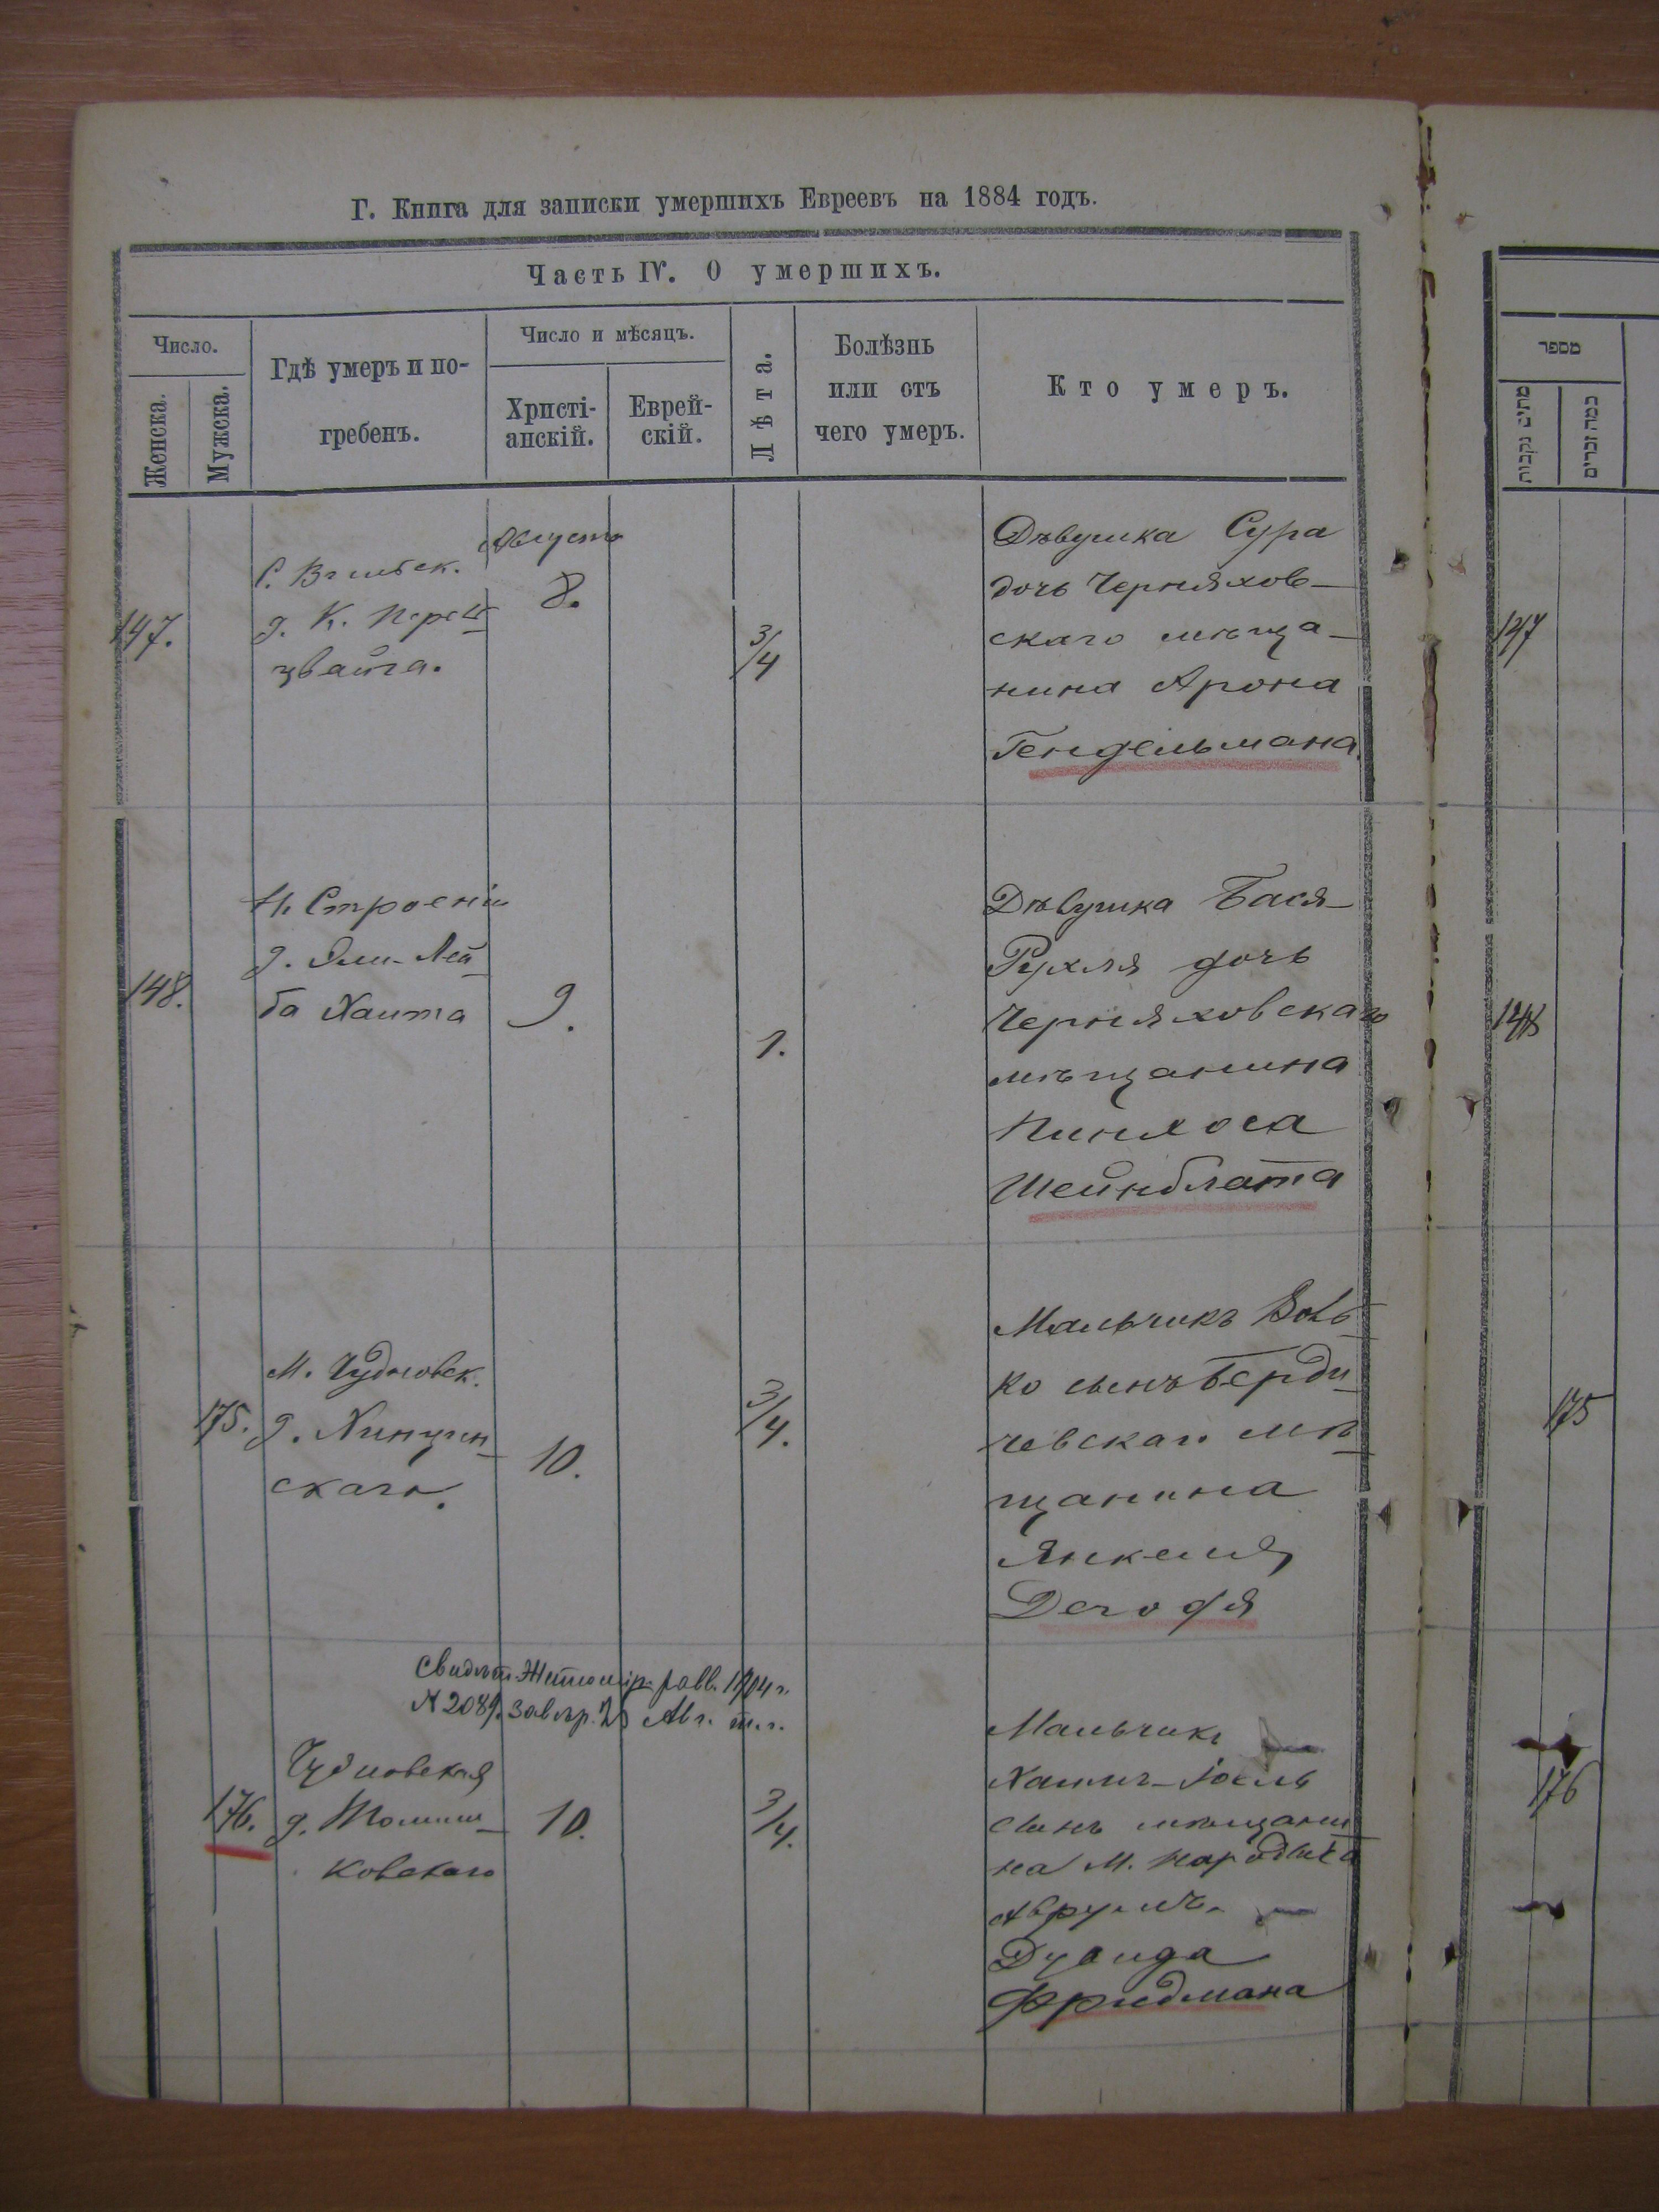 Г. Книга для записки умершихъ Евреевъ на 1884 годъ.
Часть IV. О умершихъ.
Число.
Женска.
Мужска.
Гдѣ умеръ и по-
гребенъ.
Число и мѣсяцъ.
Христі-
анскій.
Еврей-
скій.
Лѣта.
Болѣзнь
или отъ
чего умеръ.
Кто умеръ.
מספר
מתים נקבות
כמה זכרים
147.
С. Вильск.
д. К.
цвайга.
Августа
8.
3/4
Дѣвушка Сура
дочь Черняхов-
скаго мѣща-
нина Арона
Гендельмана.
147
148.
Н. Строеній
д. Лей-
ба Хаита
9.
1.
Дѣвушка Бася-
Рухля дочь
Черняховскаго
мѣщанина
Пинхоса
Шейнблата
148
175.
М. Чудновск.
д. Хинчин-
скаго.
10.
3/4.
Мальчикъ Воль-
ко сынъ Берди-
чевскаго мѣ-
щанина
Янкеля
175
Свидѣт. Житомір. равв. 1904 г.
Авг. т. г.
176.
Чудновская
д.
ковскаго
10.
3/4.
Мальчикъ
Хаимъ-Іоель
сынъ мѣщани-
на М. Народыча
Аврумъ-
Дувида
Фридмана
176